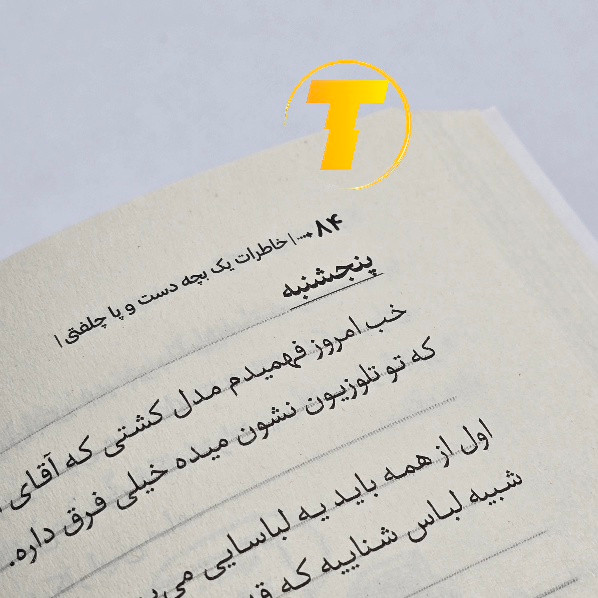 T
۸۴ ... | خاطرات یک بچه دست و پا چلفتی |
پنجشنبه
خب امروز فهمیدم مدل کشتی که آقای
که تو تلوزیون نشون میده خیلی فرق داره.
اول از همه باید یه لباسایی
شبیه لباس شناییه که